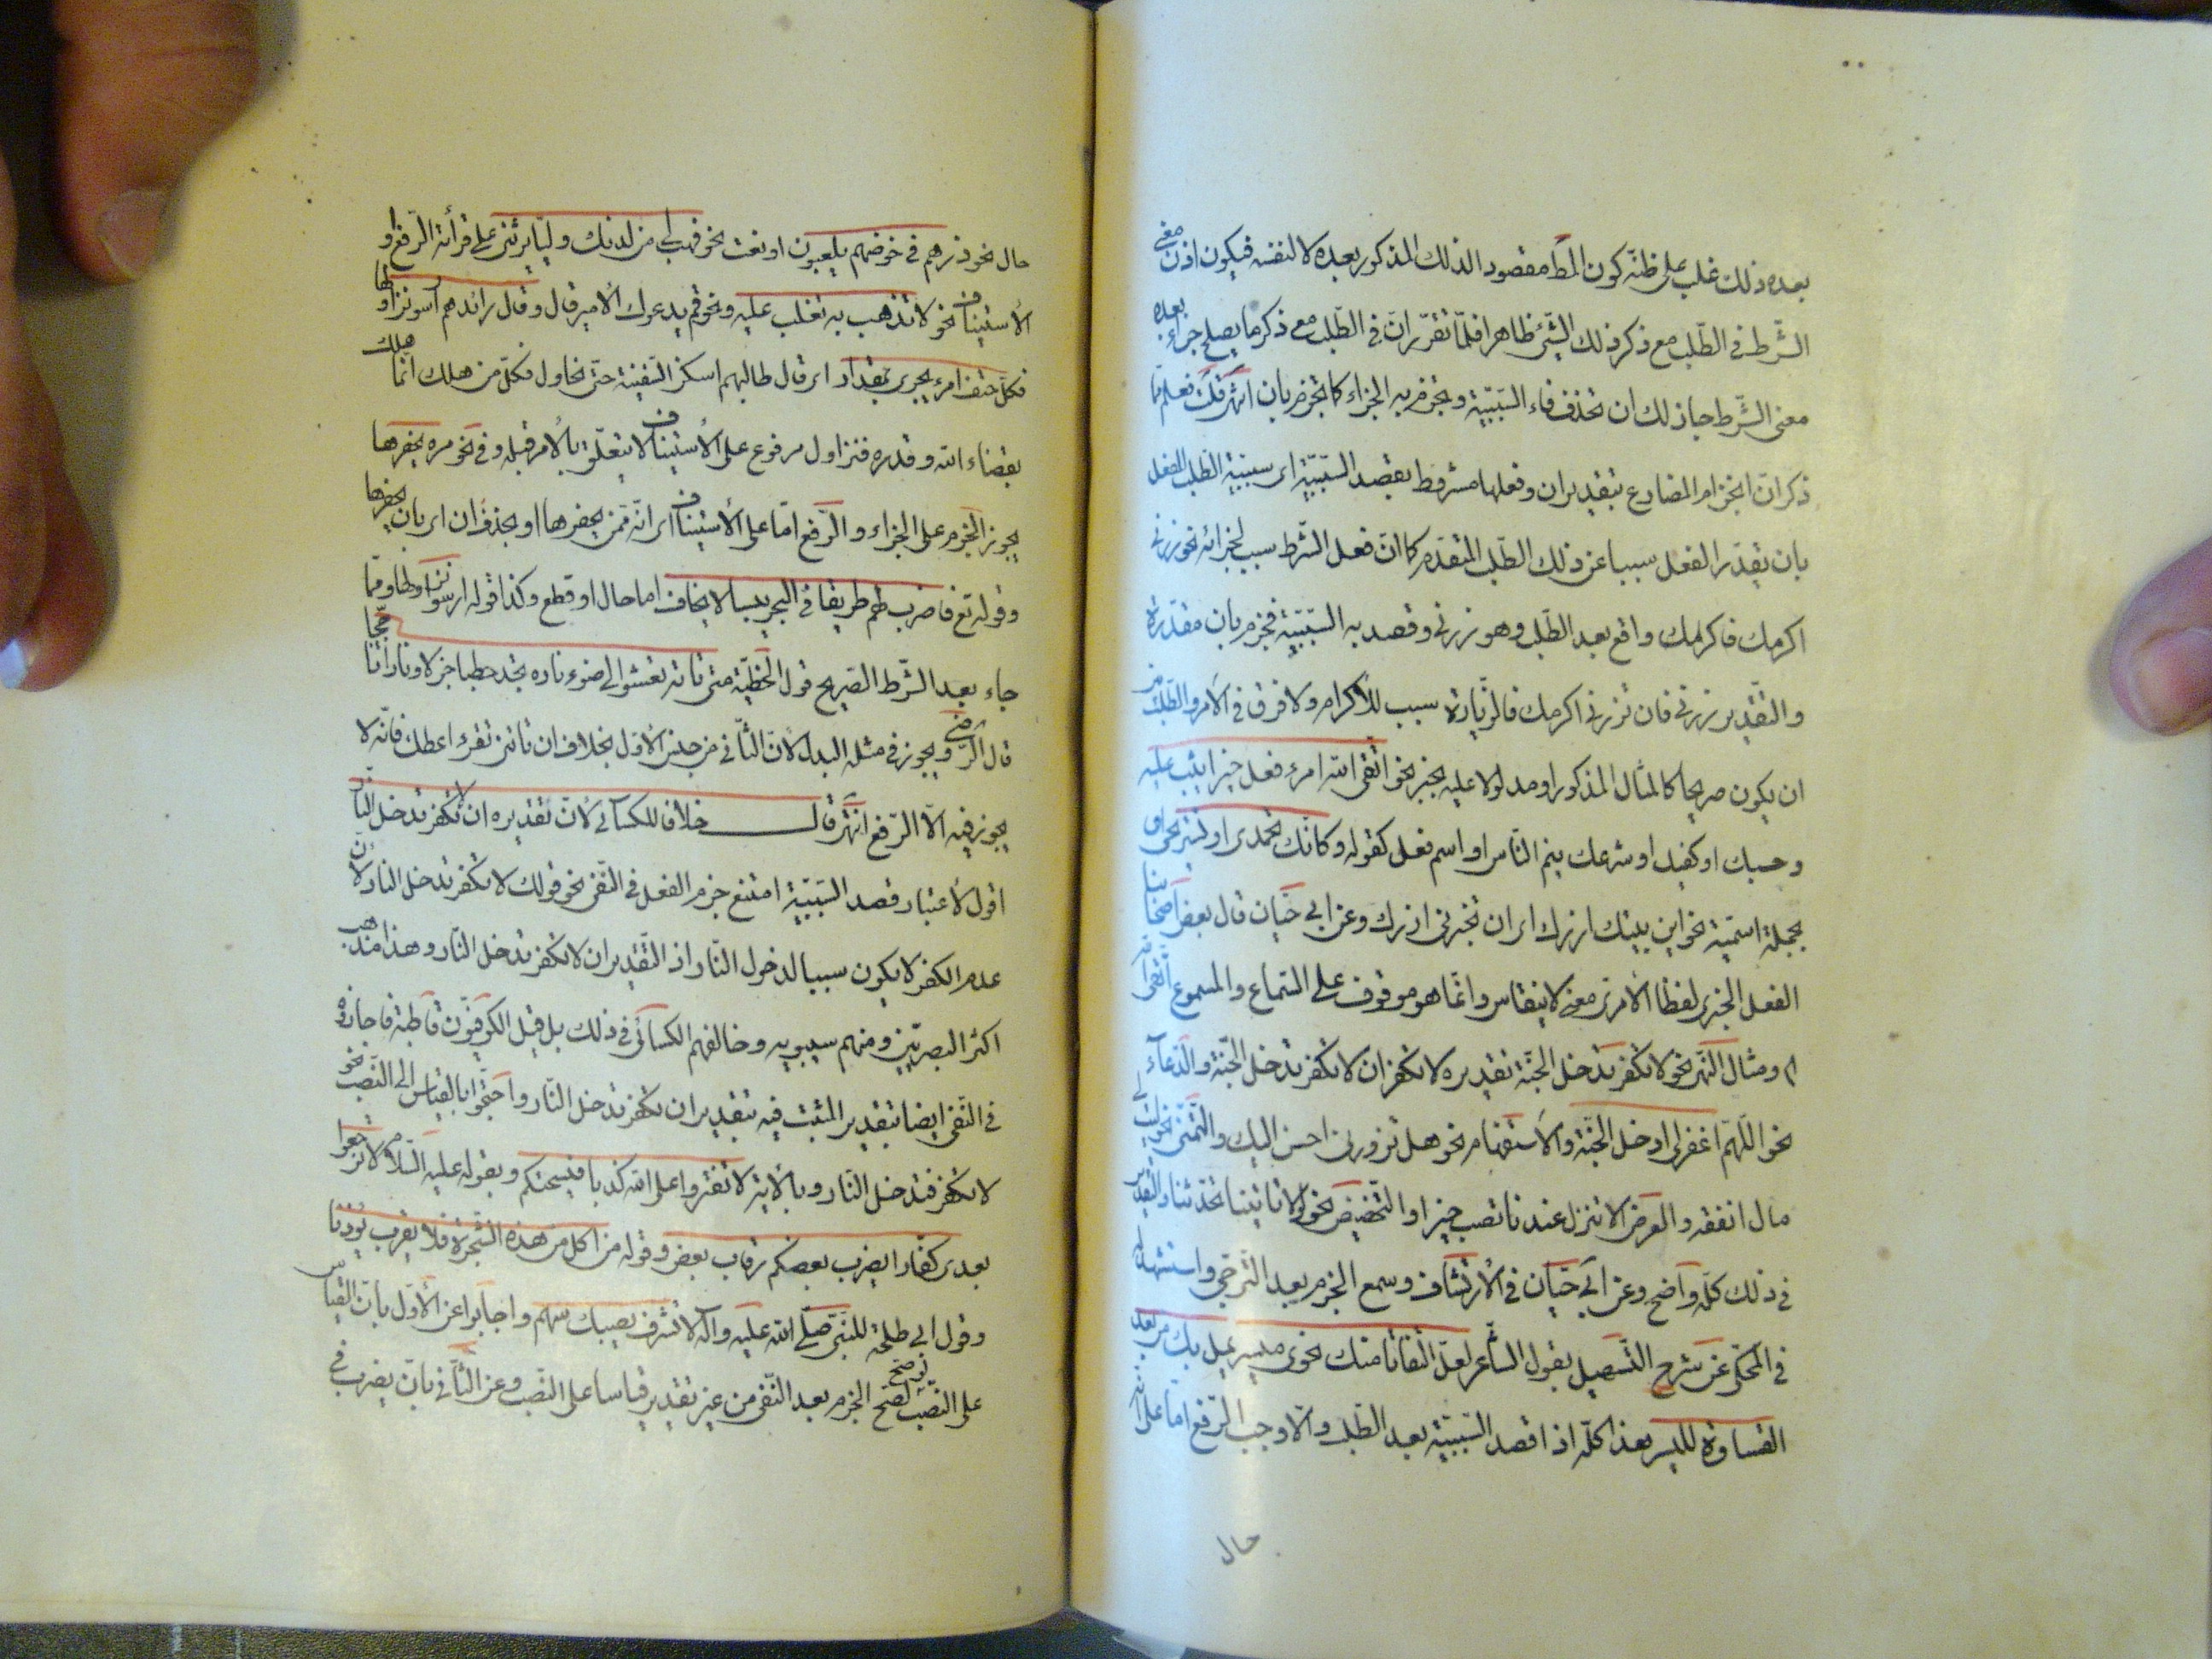 بعده وذلك غلب على ظنّه كون المط مقصود الذلك المذكور بعده لا لنفسه فيكون اذن معنى
الشّرط فى الطّلب مع ذكر ذلك الشّئ ظاهرا فلمّا تقرّر انّ فى الطّلب مع ذكر ما يصلح جزاء بعده
معنى الشّرط جاز لك ان تحذف فاء السّببيّة وتجزم به الجزاء كما تجزم بان انتهى فعلم ممّا
ذكر انّ انجزام المضارع بتقدير ان وفعلها مشروط بقصد السّببيّة اى سببيّة الطّلب للفعل
بان يقدّر الفعل سببا عن ذلك الطّلب المتقدّم كما انّ فعل الشّرط سبب لجزائه نحو زرنى
اكرمك فاكرمك واقع بعد الطّلب وهو زرنى وقصد به السّببيّة فجزم بان مقدّرة
والتّقدير زرنى فان تزرنى اكرمك فالزّيارة سبب للأكرام ولا فرق فى الأمر والطّلب من
ان يكون صريحا كالمثال المذكور او مدلولا عليه بخبر نحو اتقى الله امرء فعل خيرا يثب عليه
وحسبك او كفيك او شرعك ينم النّاس او اسم فعل كقوله وكانّك تحمدى او تستريحى او
بجملة اسميّة نحو اين بيتك ازرك اى ان تخبرنى ازرك وعن ابى حيّان قال بعض اصحابنا
الفعل الخبرى لفظا الأمرىّ معنى لا ينقاس وانّما هو موقوف على السّماع والمسموع اتّقى الله
ومثال النّهى نحو لا تكفر تدخل الجنّة تقديره لا تكفر ان لا تكفر تدخل الجنّة والدّعاء
نحو اللّهمّ اغفر لى ادخل الجنّة والأستفهام نحو هل تزورنى احسن اليك والتّمنّى نحو ليت لى
مال انفقه والعرض الا تنزل عندنا تصب خيرا والتّحضيض نحو لولا تاتينا تحدّثنا والتقدير
فى ذلك كلّه واضح وعن ابى حيّان فى الأرتشاف وسمع الجزم بعد التّرجّى واستشهد له
فى المحكّى عن شرح التّسهيل بقول الشّاعر لعلّ التفاتا منك نحوى ميسر يمل بك من بعد
القساوة لليسر هذا كلّه اذا قصد السّببيّة بعد الطّلب والّا وجب الرّفع امّا على انه
حال
حال نحو ذرهم فى خوضهم يلعبون او نعت نحو فهب لى من لدنك وليّا يرثنى على قرأة الرّفع او
الأستيناف نحو لا تذهب به تغلب عليه ونحو قم يدعوك الأمير قال وقال رائدهم ارسو نزاولها
فكلّ حتف امرء يجرى بمقدار اى قال طالبهم اسكن السّفينة حتّى نحاول فكلّ من هلك انّما هلك
بقضاء الله وقدره فنزاول مرفوع على الأستيناف لا يتعلّق بالأمر قبله وفى نحو مره يحفرها
يجوز الجزم على الجزاء والرّفع امّا على الأستيناف اى انّه ممّن يحفرها او بحذف ان اى بان يحفرها
وقوله تع فاضرب لهم طريقا فى البحر يبسا لا يخاف اما حال او قطع وكذا قوله ارسو نزاولها وممّا
جاء بعد الشّرط الصّريح قول الحطيّة متى تاته تعشو الى ضوء ناره تجد حطبا جزلا ونارا تاجّجا
قال الرّضى ويجوز فى مثله البدل لانّ الثّانى من جنس الأوّل بخلاف ان تاتنى تقرء اعطك فانّه لا
يجوز فيه الّا الرّفع انتهى قال خلافا للكسائى لأنّ تقديره ان لا تكفر تدخل النّار
اقول لأعتبار قصد السّببيّة امتنع جزم الفعل فى النّفى نحو قولك لا تكفر تدخل النار لانّ
عدم الكفر لا يكون سببا لدخول النّار اذ التّقدير ان لا تكفر تدخل النّار وهذا مذهب
اكثر البصريّين ومنهم سيبويه وخالفهم الكسائى فى ذلك بل قيل الكوفيّون قاطبة فاجازوه
فى النّفى ايضا بتقدير المثبت فيه بتقدير ان تكفر تدخل النّار واحتجّوا بالقياس الى النّصب نحو
لا تكفر فتدخل النّار وبالأية لا تفتروا على الله كذبا فيسحتكم وبقوله عليه السّلام لا ترجعوا
بعدى كفّارا يضرب بعضكم رقاب بعض وقوله من اكل من هذه الشّجرة فلا يقرب يؤذنا
وقول ابى طلحة للنّبىّ صلّى الله عليه وآله لا تشرف يصيبك سهم واجابوا عن الأوّل بانّ القياس
على النّصب لصحّ الجزم بعد النّفى من غير تقدير قياسا على النّصب وعن الثّانى بانّ يضرب فى